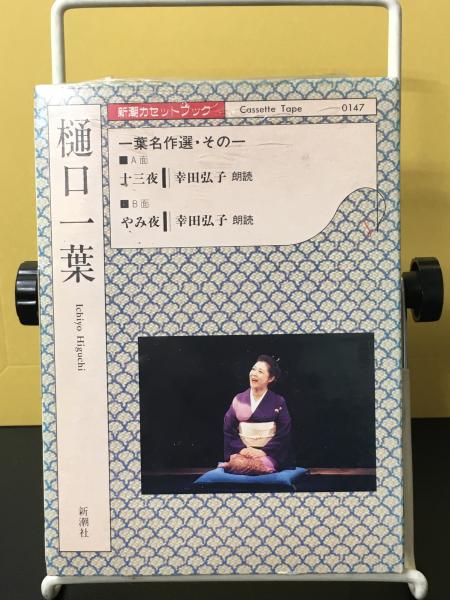 新潮カセットブック Cassette Tape 0147
樋口一葉
Ichiyo Higuchi
新潮社
一葉名作選・その一
■A面
十三夜 幸田弘子 朗読
■B面
やみ夜 幸田弘子 朗読